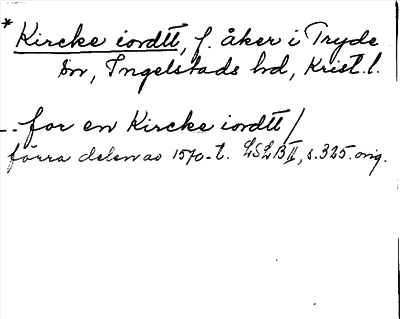 * Kircke iordtt, f. åker i Tryde
sn, Ingelstads hd, Krist. l.
-- for en Kircke iordtt /
förra delen av 1570-t. LSLB II, s. 325. orig.